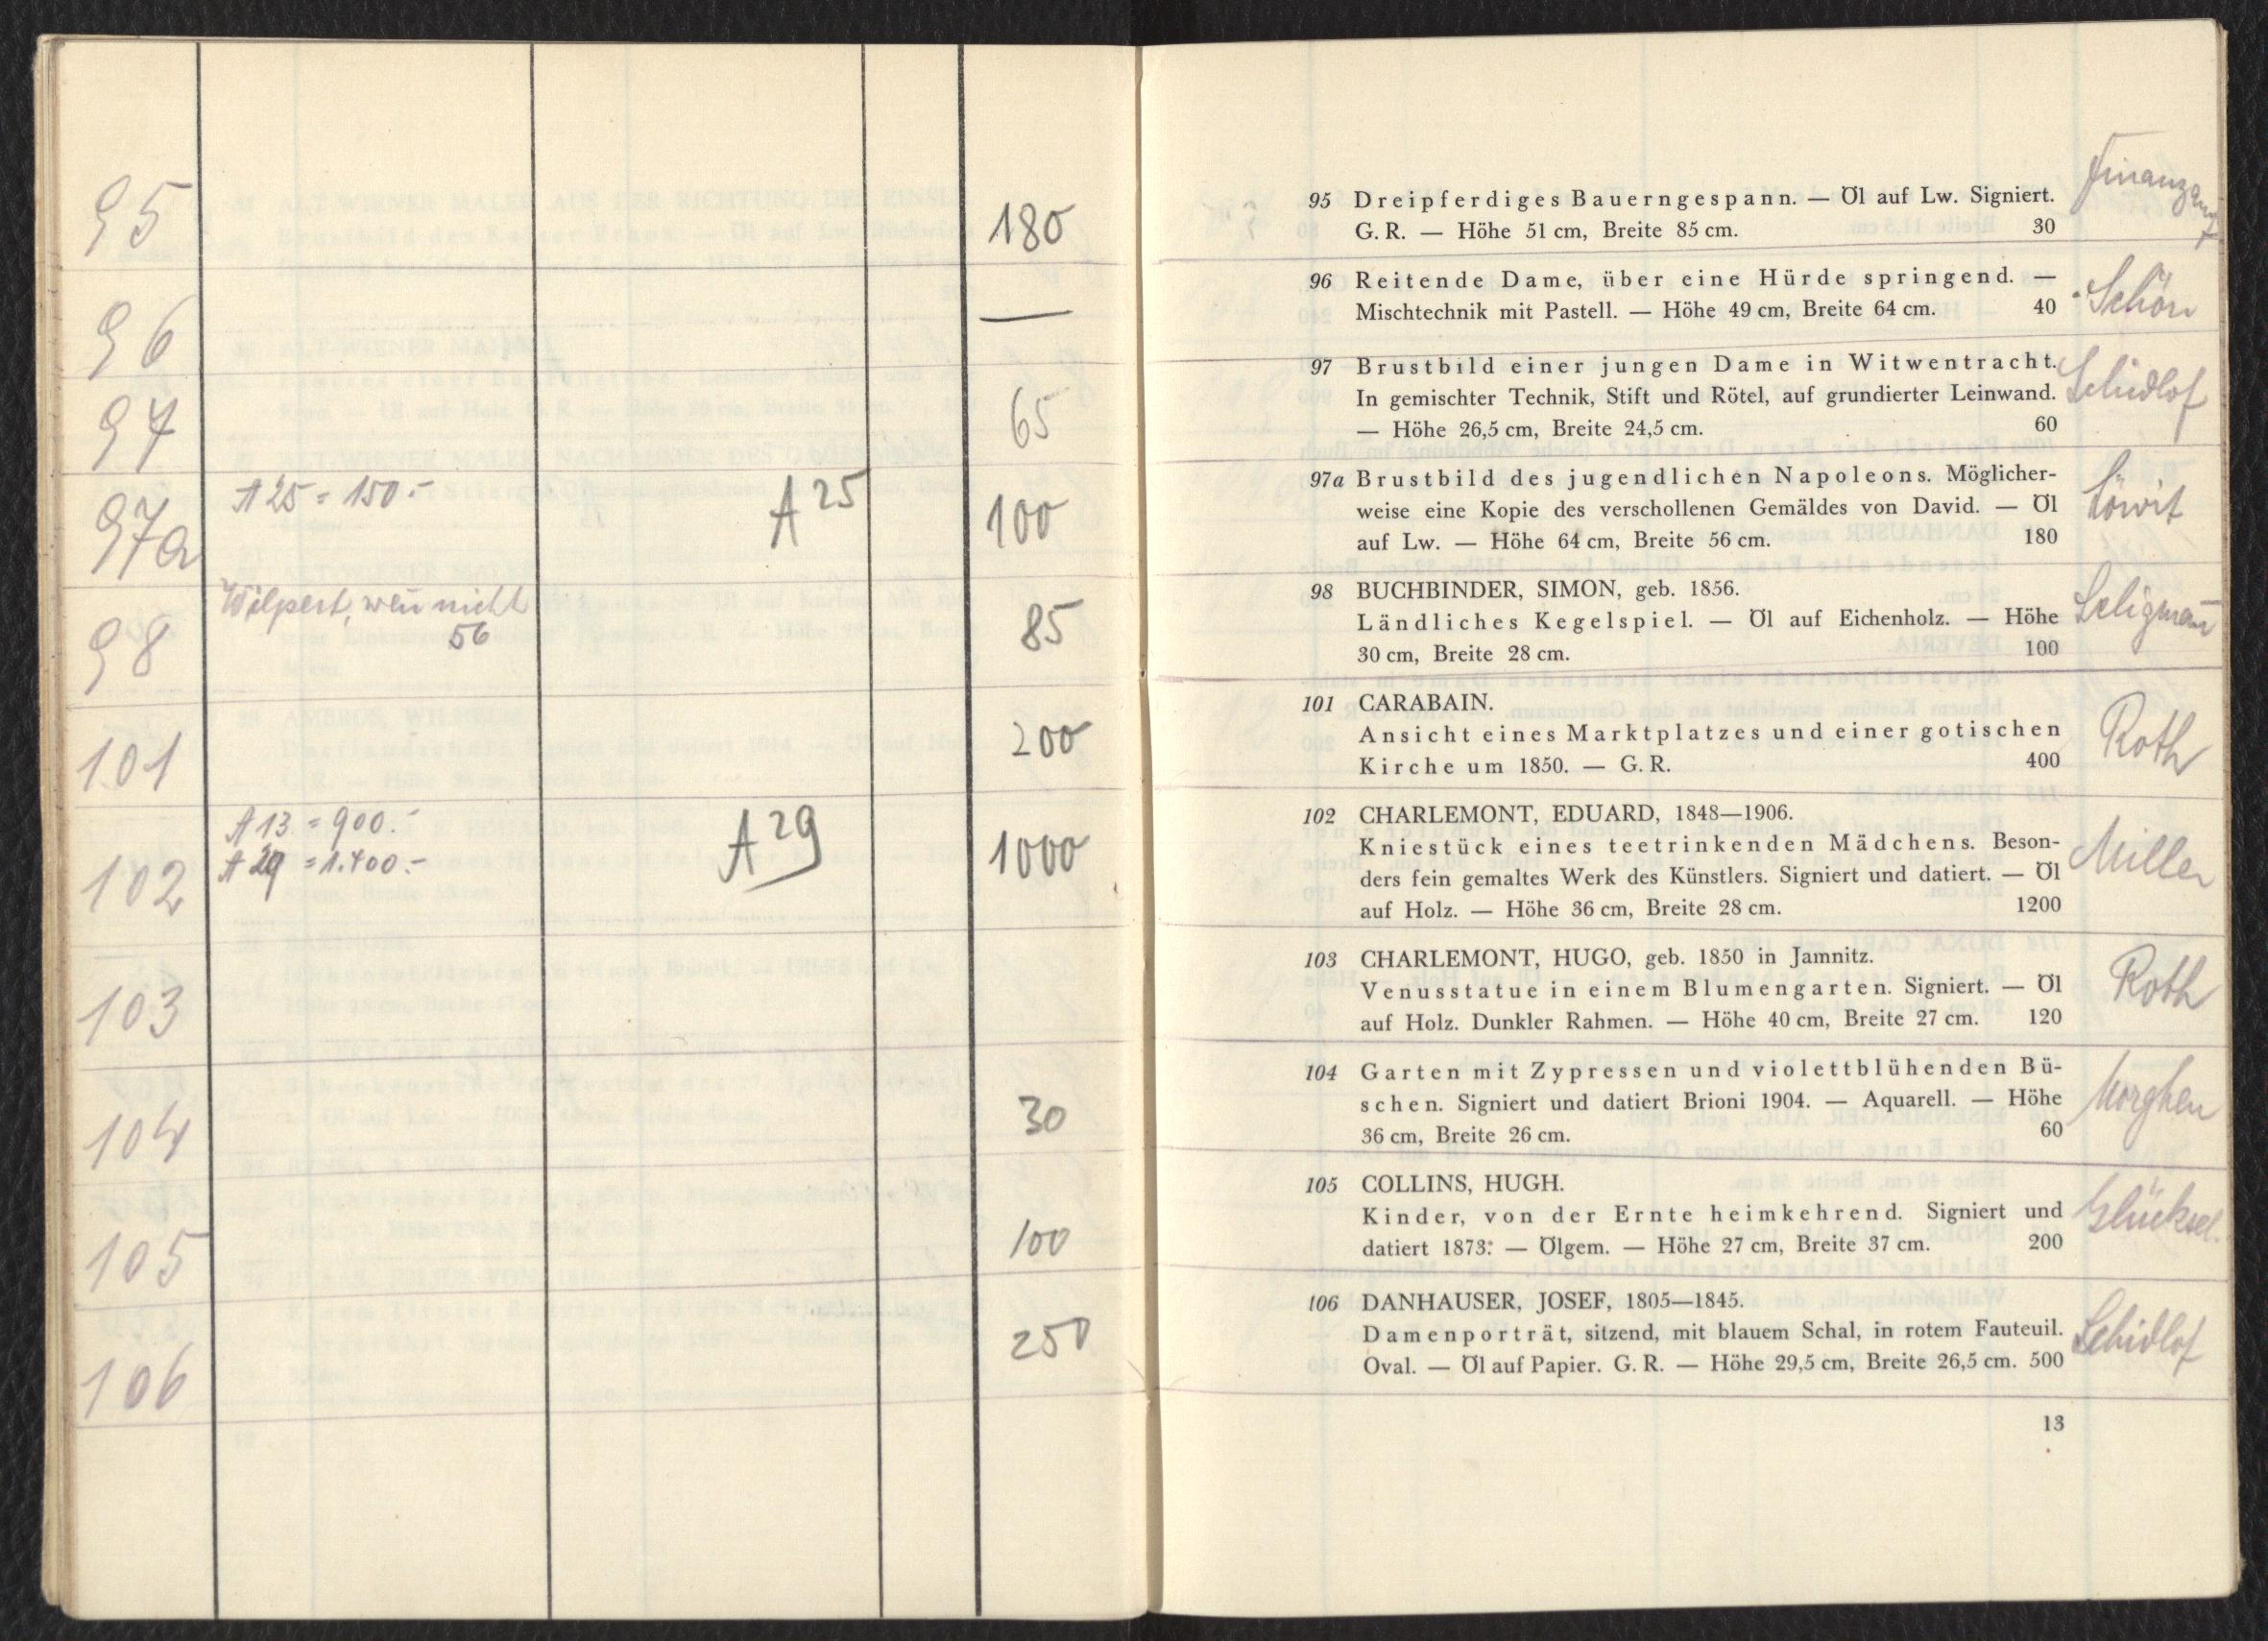 95
180
96
—
97
65
97a
A 25 = 150.-
A 25
100
98
Wilpert, weñ nicht
56
85
101
200
102
A 13 = 900.-
A 29 = 1.400.-
A 29
1000
103
104
30
105
100
106
250
95 Dreipferdiges Bauerngespann. — Öl auf Lw. Signiert.
G. R. — Höhe 51 cm, Breite 85 cm. 30
Finanzamt
96 Reitende Dame, über eine Hürde springend. —
Mischtechnik mit Pastell. — Höhe 49 cm, Breite 64 cm. 40
Schön
97 Brustbild einer jungen Dame in Witwentracht.
In gemischter Technik, Stift und Rötel, auf grundierter Leinwand.
— Höhe 26,5 cm, Breite 24,5 cm. 60
Schidlof
97a Brustbild des jugendlichen Napoleons. Möglicher-
weise eine Kopie des verschollenen Gemäldes von David. — Öl
auf Lw. — Höhe 64 cm, Breite 56 cm. 180
Löwit
98 BUCHBINDER, SIMON, geb. 1856.
Ländliches Kegelspiel. — Öl auf Eichenholz. — Höhe
30 cm, Breite 28 cm. 100
Seligmañ
101 CARABAIN.
Ansicht eines Marktplatzes und einer gotischen
Kirche um 1850. — G. R. 400
Roth
102 CHARLEMONT, EDUARD, 1848—1906.
Kniestück eines teetrinkenden Mädchens. Beson-
ders fein gemaltes Werk des Künstlers. Signiert und datiert. — Öl
auf Holz. — Höhe 36 cm, Breite 28 cm. 1200
Miller
103 CHARLEMONT, HUGO, geb. 1850 in Jamnitz.
Venusstatue in einem Blumengarten. Signiert. — Öl
auf Holz. Dunkler Rahmen. — Höhe 40 cm, Breite 27 cm. 120
Roth
104 Garten mit Zypressen und violettblühenden Bü-
schen. Signiert und datiert Brioni 1904. — Aquarell. — Höhe
36 cm, Breite 26 cm. 60
Morghen
105 COLLINS, HUGH.
Kinder, von der Ernte heimkehrend. Signiert und
datiert 1873. — Ölgem. — Höhe 27 cm, Breite 37 cm. 200
Glücksel.
106 DANHAUSER, JOSEF, 1805—1845.
Damenporträt, sitzend, mit blauem Schal, in rotem Fauteuil.
Oval. — Öl auf Papier. G. R. — Höhe 29,5 cm, Breite 26,5 cm. 500
Schidlof
13